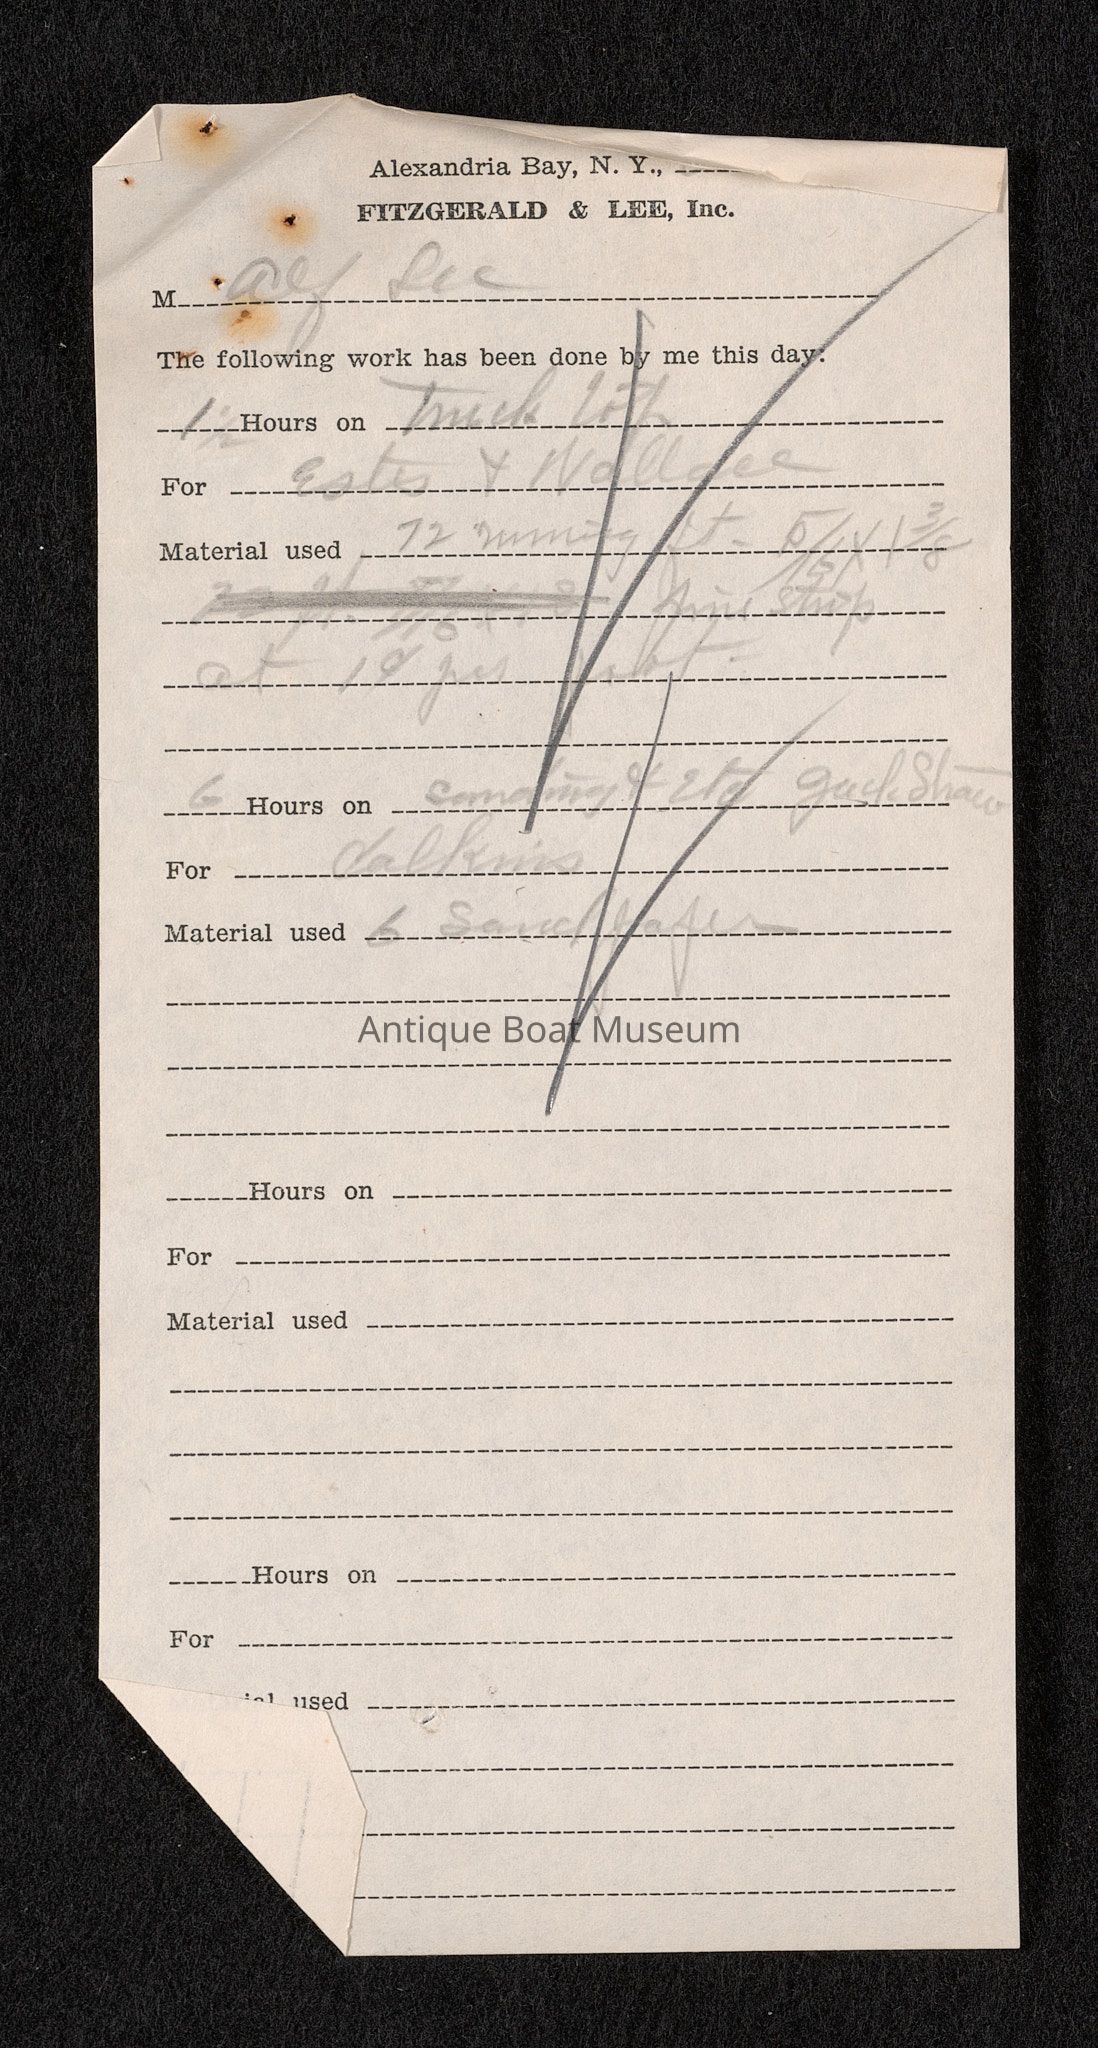 Alexandria Bay, N. Y.,
FITZGERALD & LEE, Inc.
M Alf Lee
The following work has been done by me this day:
1 1/2 Hours on Truck
For Estes & Wallace
Material used 72 running ft - 5/16 x 1 3/8
pine strip
at 1¢ per foot -
6 Hours on sanding & etc
For Calkins
Material used 6 Sandpaper
Antique Boat Museum
Hours on
For
Material used
Hours on
For
ial used